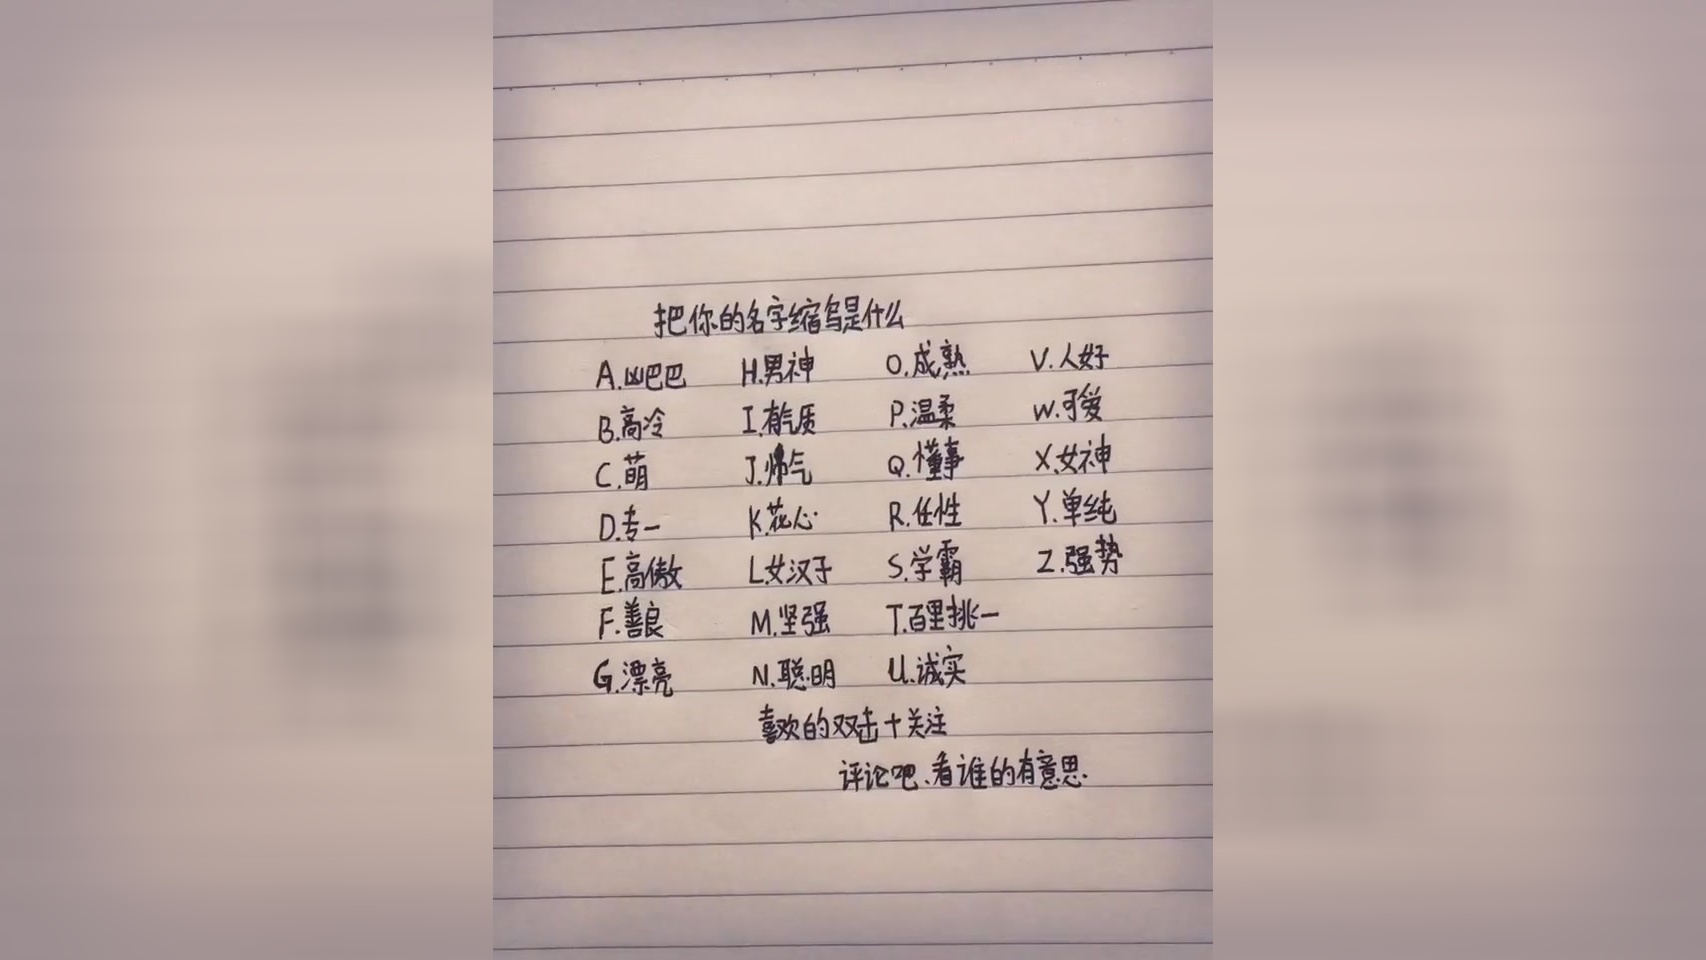 把你的名字缩写是什么
A.凶巴巴 H.男神 O.成熟 V.人好
B.高冷 I.有气质 P.温柔 W.可爱
C.萌 J.帅气 Q.懂事 X.女神
D.专一 K.花心 R.任性 Y.单纯
E.高傲 L.女汉子 S.学霸 Z.强势
F.善良 M.坚强 T.百里挑一
G.漂亮 N.聪明 U.诚实
喜欢的双击+关注
评论吧、看谁的有意思.